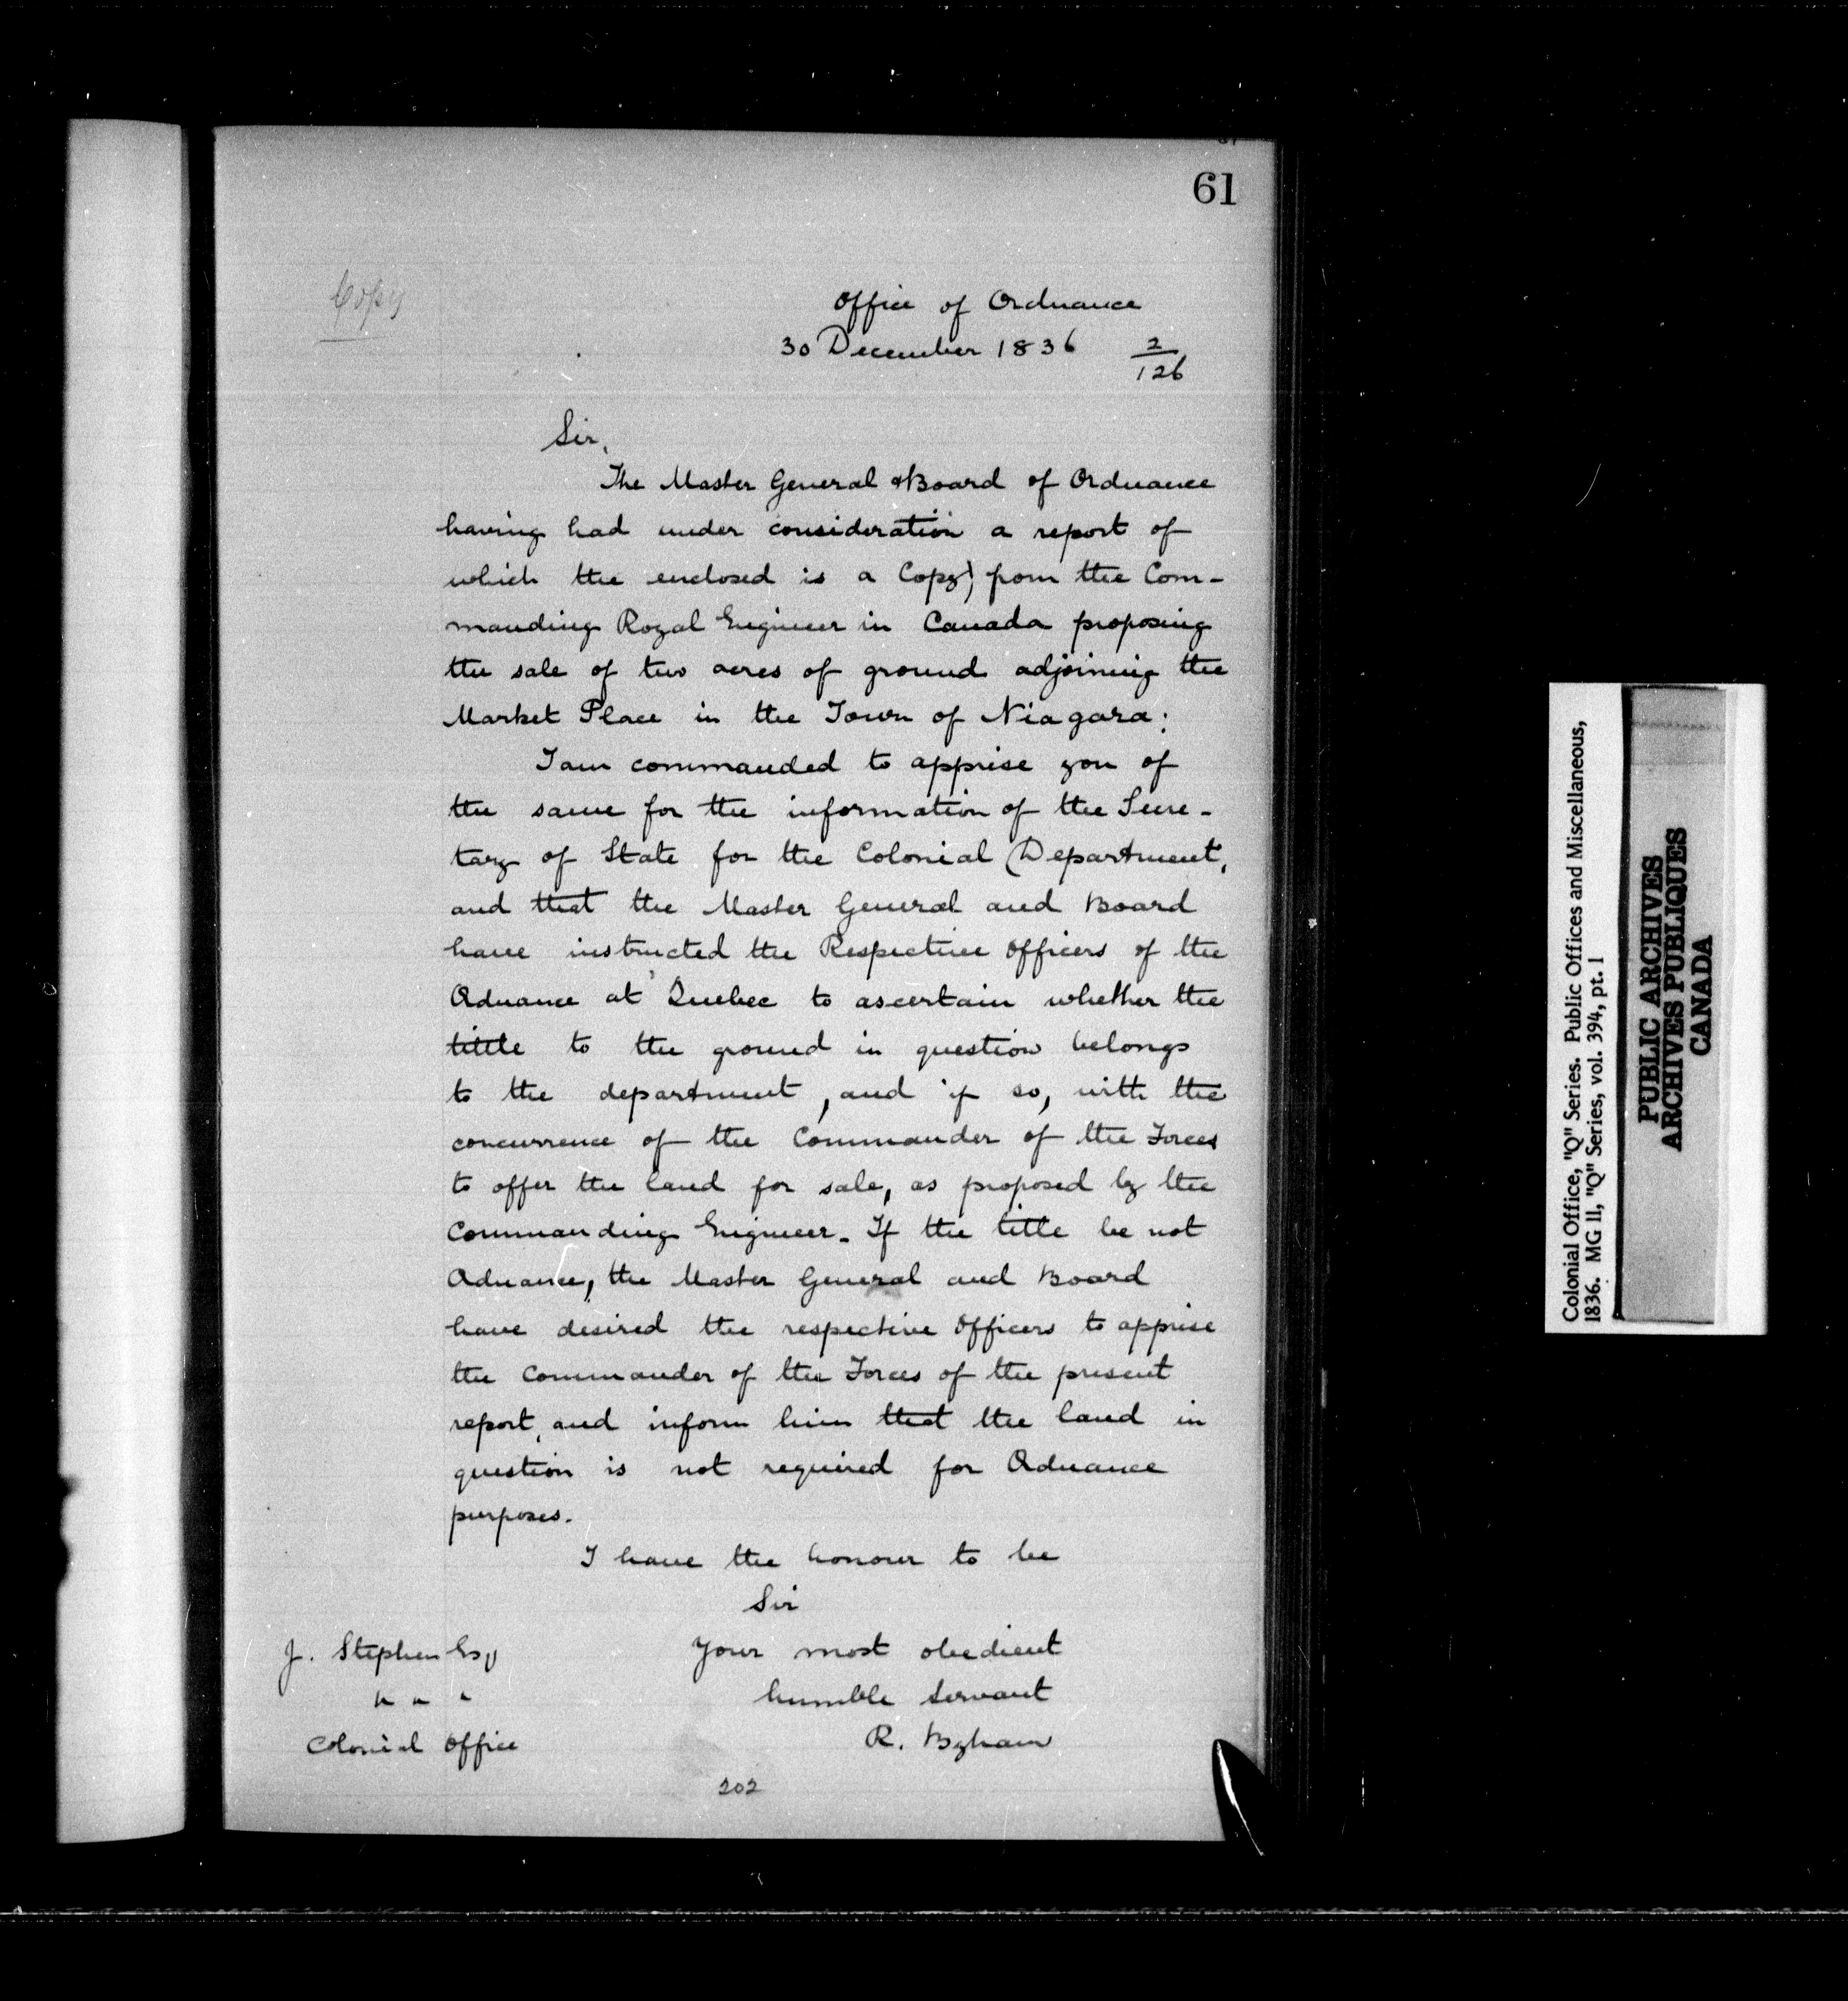 61
Copy
Office of Ordnance
30 December 1836 2/126
Sir,
The Master General & Board of Ordnance
having had under consideration a report of
which the enclosed is a Copy) from the Com-
manding Royal Engineer in Canada proposing
the sale of two acres of ground adjoining the
Market Place in the Town of Niagara:
I am commanded to apprise you of
the same for the information of the Secre-
tary of State for the Colonial Department,
and that the Master General and Board
have instructed the Respective Officers of the
Ordnance at Quebec to ascertain whether the
tittle to the ground in question belongs
to the department, and if so, with the
concurrence of the Commander of the Forces
to offer the land for sale, as proposed by the
Commanding Engineer. If the title be not
Ordnance, the Master General and Board
have desired the respective Officers to apprise
the Commander of the Forces of the present
report, and inform him that the land in
question is not required for Ordnance
purposes.
I have the honour to be
Sir
Your most obedient
humble servant
R. Byham
J. Stephen Esq
" " "
Colonial Office
202
Colonial Office, "Q" Series. Public Offices and Miscellaneous,
1836. MG 11, "Q" Series, vol. 394, pt. 1
PUBLIC ARCHIVES
ARCHIVES PUBLIQUES
CANADA